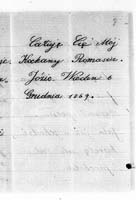 Całuję Cię Mój
Kochany Romanie.
Józio. Wiedeń 6
Grudnia 1869.